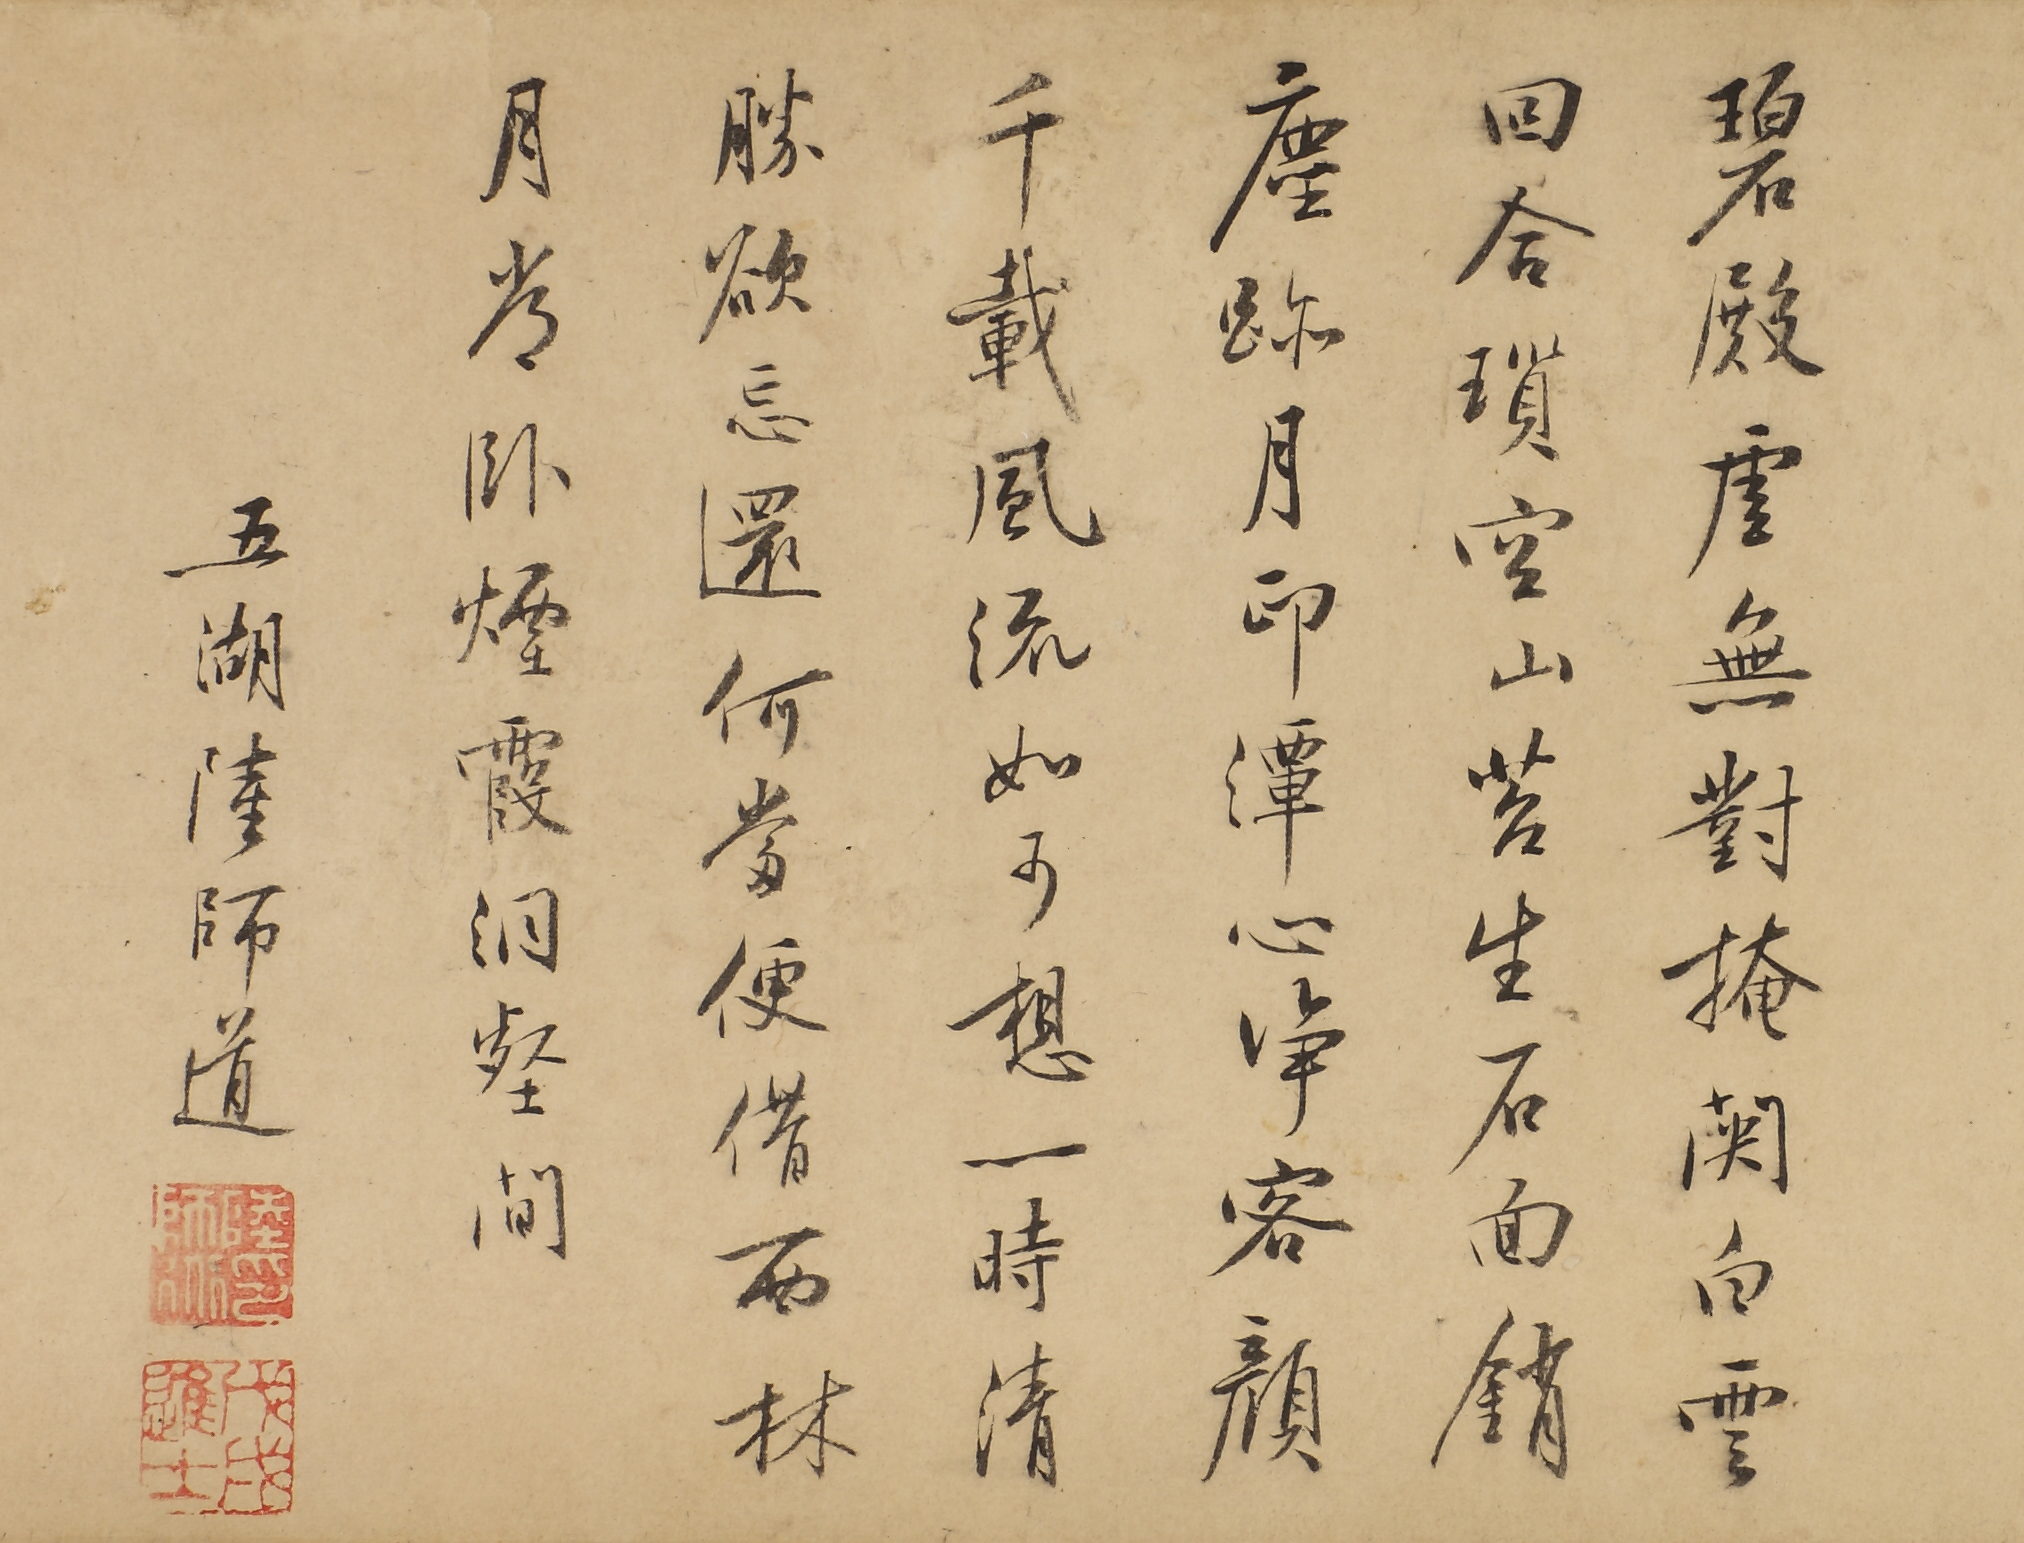 碧殿虛無對掩関白雲
回合瑣空山苔生石面銷
塵跡月印潭心淨客顔
千載風流如可想一時清
勝欲忘還何當便借西林
月常卧煙霞洞壑間
五湖陸師道
陸師道印
戊戌進士